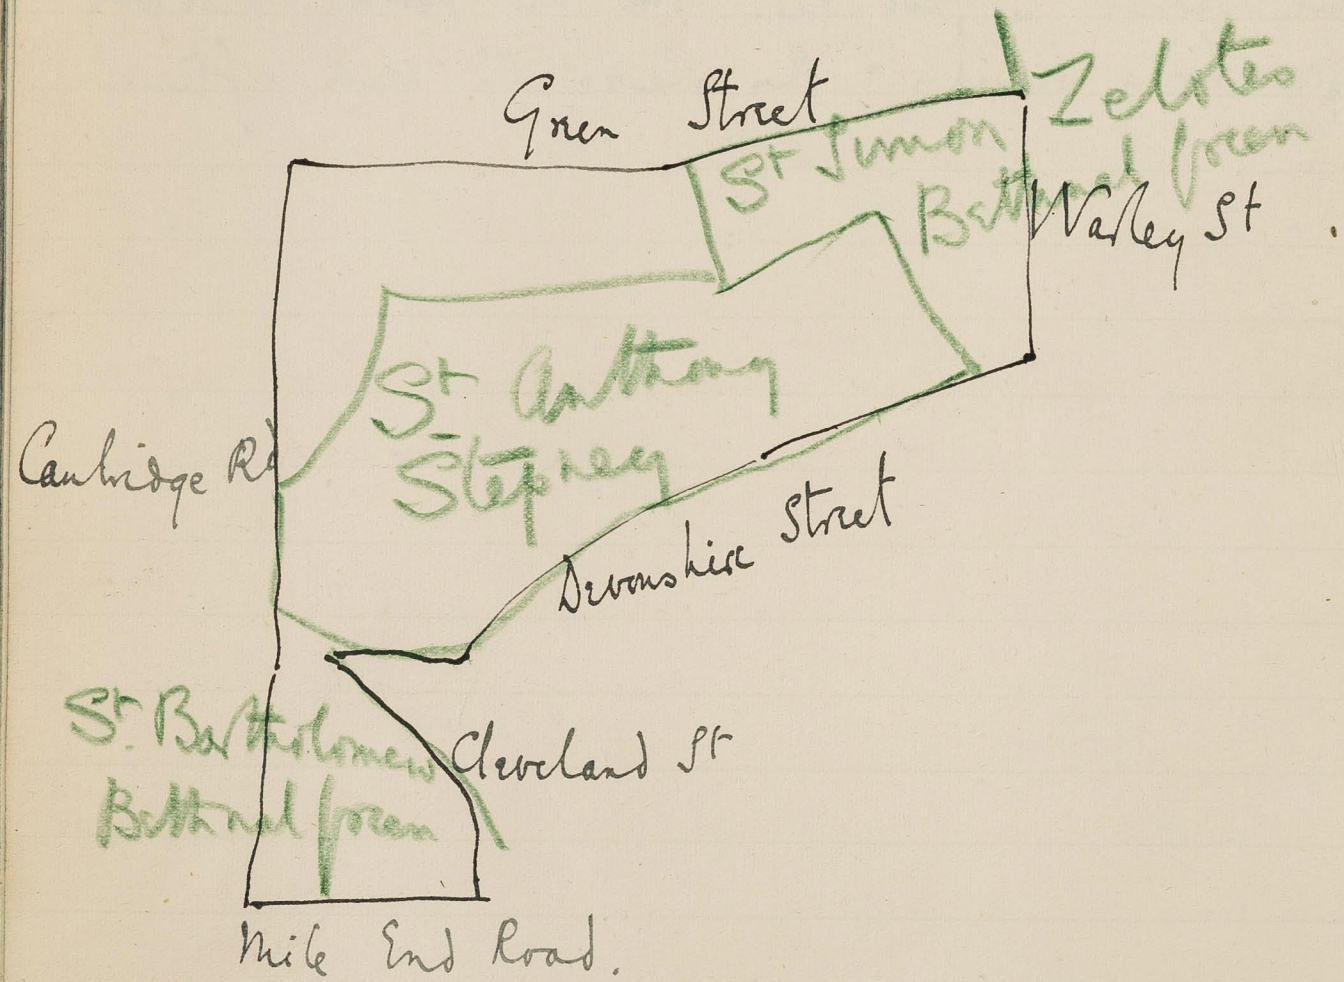 Green Street
St Simon Zelotes
Bethnal Green
Warley St
St Anthony
Stepney
Cambridge Rd
Devonshire Street
St. Bartholomew
Bethnal Green
Cleveland St
Mile End Road.